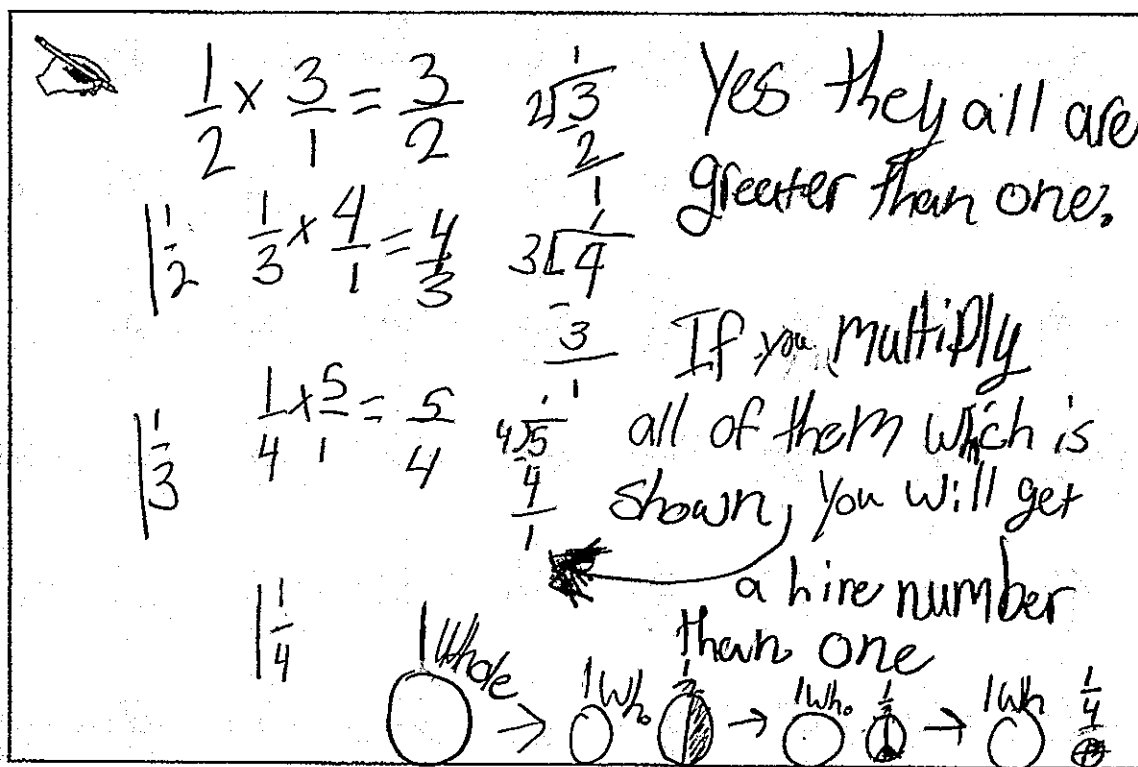 1/2 × 3/1 = 3/2
1
2⟌3
- 2
1
1 1/2
1/3 × 4/1 = 4/3
1
3⟌4
- 3
1
1 1/3
1/4 × 5/1 = 5/4
1
4⟌5
- 4
1
1 1/4
Yes they all are
greater than one.
If you multiply
all of them which is
shown, you will get
a hire number
than one
1 Whole → 1 Wh. 1/2 → 1 Wh. 1/3 → 1 Wh 1/4